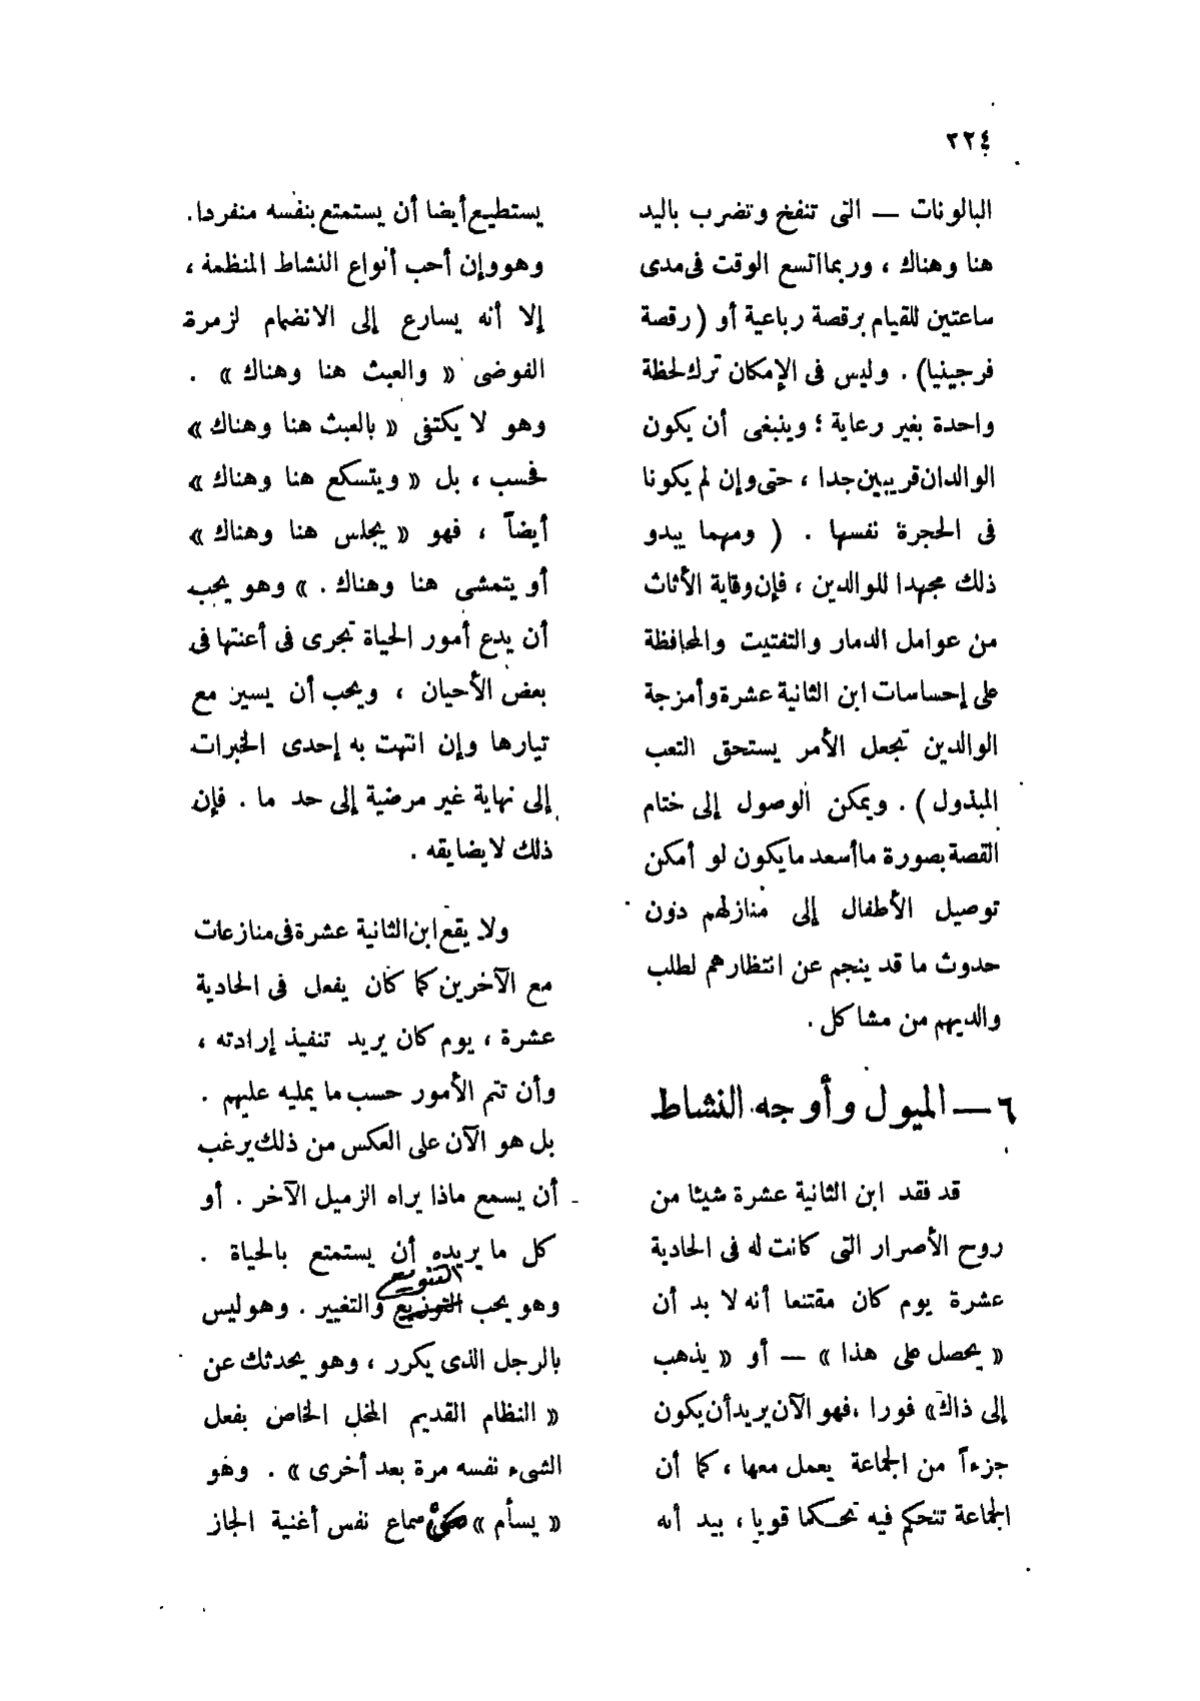 ٢٢٤
البالونات — التى تنفخ وتضرب باليد
هنا وهناك ، وربما اتسع الوقت فى مدى
ساعتين للقيام برقصة رباعية أو ( رقصة
فرجينيا) . وليس فى الإمكان ترك لحظة
واحدة بغير رعاية ؛ وينبغى أن يكون
الوالدان قريبين جدا ، حتى وإن لم يكونا
فى الحجرة نفسها . ( ومهما يبدو
ذلك مجهدا للوالدين ، فإن وقاية الأثاث
من عوامل الدمار والتفتيت والمحافظة
على إحساسات ابن الثانية عشرة وأمزجة
الوالدين تجعل الأمر يستحق التعب
المبذول ) . ويمكن الوصول إلى ختام
القصة بصورة ما أسعد ما يكون لو أمكن
توصيل الأطفال إلى منازلهم دون
حدوث ما قد ينجم عن انتظارهم لطلب
والديهم من مشاكل .
٦ — الميول وأوجه النشاط
قد فقد ابن الثانية عشرة شيئا من
روح الأصرار التى كانت له فى الحادية
عشرة يوم كان مقتنعا أنه لا بد أن
« يحصل على هذا » — أو « يذهب
إلى ذاك» فورا ، فهو الآن يريد أن يكون
جزءاً من الجماعة يعمل معها ، كما أن
الجماعة تتحكم فيه تحكما قويا ، بيد أنه
يستطيع أيضا أن يستمتع بنفسه منفردا .
وهو وإن أحب أنواع النشاط المنظمة ،
إلا أنه يسارع إلى الانضمام لزمرة
الفوضى « والعبث هنا وهناك » .
وهو لا يكتفى « بالعبث هنا وهناك »
فحسب ، بل « ويتسكع هنا وهناك »
أيضاً ، فهو « يجلس هنا وهناك »
أو يتمشى هنا وهناك . » وهو يحب
أن يدع أمور الحياة تجرى فى أعنتها فى
بعض الأحيان ، ويحب أن يسير مع
تيارها وإن انتهت به إحدى الخبرات
إلى نهاية غير مرضية إلى حد ما . فإن
ذلك لا يضايقه .
ولا يقع ابن الثانية عشرة فى منازعات
مع الآخرين كما كان يفعل فى الحادية
عشرة ، يوم كان يريد تنفيذ إرادته ،
وأن تتم الأمور حسب ما يمليه عليهم .
بل هو الآن على العكس من ذلك يرغب
أن يسمع ماذا يراه الزميل الآخر . أو
كل ما يريده أن يستمتع بالحياة .
التنويع
وهو يحب التوزيع والتغيير . وهو ليس
بالرجل الذى يكرر ، وهو يحدثك عن
« النظام القديم المخل الخاص بفعل
الشىء نفسه مرة بعد أخرى » . وهو
« يسأم » سماع نفس أغنية الجاز